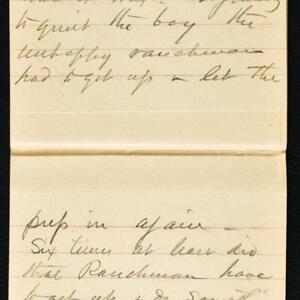 to quiet the boy the
unhappy ranchman
had to get up & let the
pups in again —
Six times at least did
that Ranchman have
to get up & do